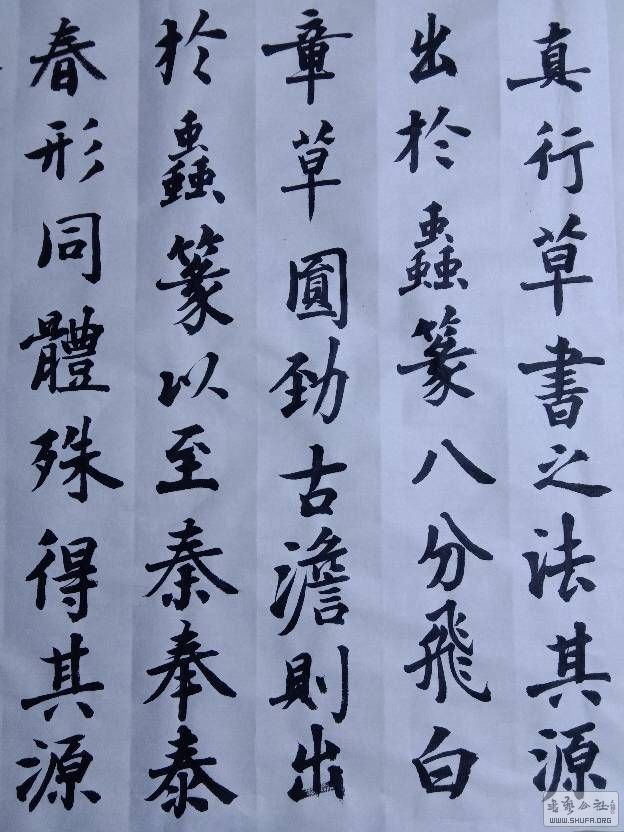 真行草書之法其源
出於蟲篆八分飛白
章草圓勁古澹則出
於蟲篆以至秦奉泰
春形同體殊得其源
WWW.SHUFA.ORG